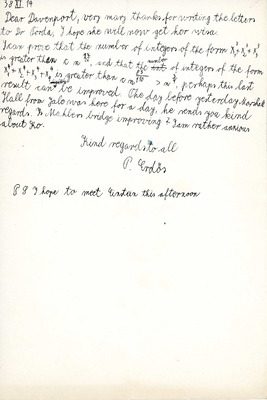 38 XI. 14
Dear Davenport, very many thanks for writing the letters
to Dr I hope she will now get her visa.
I can prove that the number of integers of the form
is greater than and that the number of integers of the form
is greater than perhaps this last
result can be improved. The day before yesterday Marshall
Hall from Yale was here for a day, he sends you kind
regards. Is Mahlers bridge improving? I am rather anxious
about Ko.
Kind regards to all
P. Erdős
P S I hope to meet Einstein this afternoon